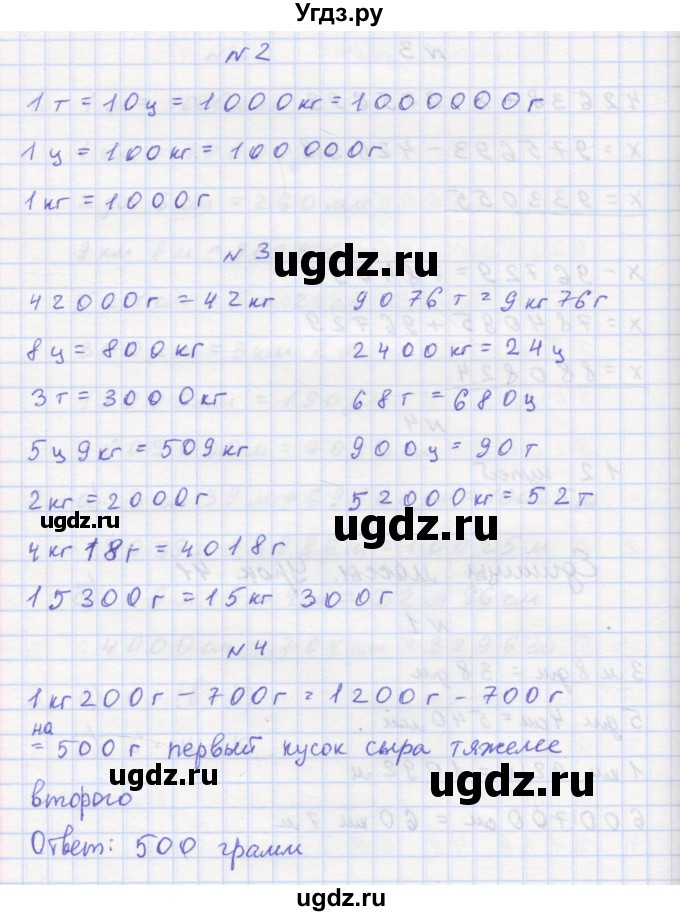 Угдз.ру
N 2
1 т = 10 ц = 1000 кг = 1000000 г
1 ц = 100 кг = 100 000 г
1 кг = 1000 г
N 3
ugdz.ru
42000 г = 42 кг 9076 г = 9 кг 76 г
8 ц = 800 кг 2400 кг = 24 ц
3 т = 3000 кг 68 т = 680 ц
5 ц 9 кг = 509 кг 900 ц = 90 т
2 кг = 2000 г 52000 кг = 52 т
ugdz.ru ugdz.ru
4 кг 18 г = 4018 г
15300 г = 15 кг 300 г
N 4
1 кг 200 г - 700 г = 1200 г - 700 г
на
= 500 г первый кусок сыра тяжелее
ugdz.ru ugdz.ru
второго
Ответ: 500 грамм
ugdz.ru